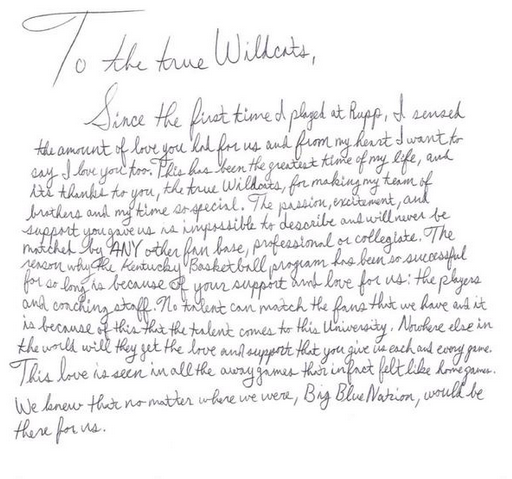 To the true Wildcats,
Since the first time I played at Rupp, I sensed
the amount of love you had for us and from my heart I want to
say I love you too. This has been the greatest time of my life, and
its thanks to you, the true Wildcats, for making my team of
brothers and my time so special. The passion, excitement, and
support you gave us is impossible to describe and will never be
matched by ANY other fan base, professional or collegiate. The
reason why the Kentucky Basketball program has been so successful
for so long is because of your support and love for us: the players
and coaching staff. No talent can match the fans that we have and it
is because of this that the talent comes to this University. Nowhere else in
the world will they get the love and support that you give us each and every game.
This love is seen in all the away games that infact felt like home games.
We knew that no matter where we were, Big Blue Nation, would be
there for us.